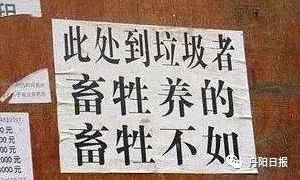 此处到垃圾者
畜牲养的
畜牲不如
丹阳日报